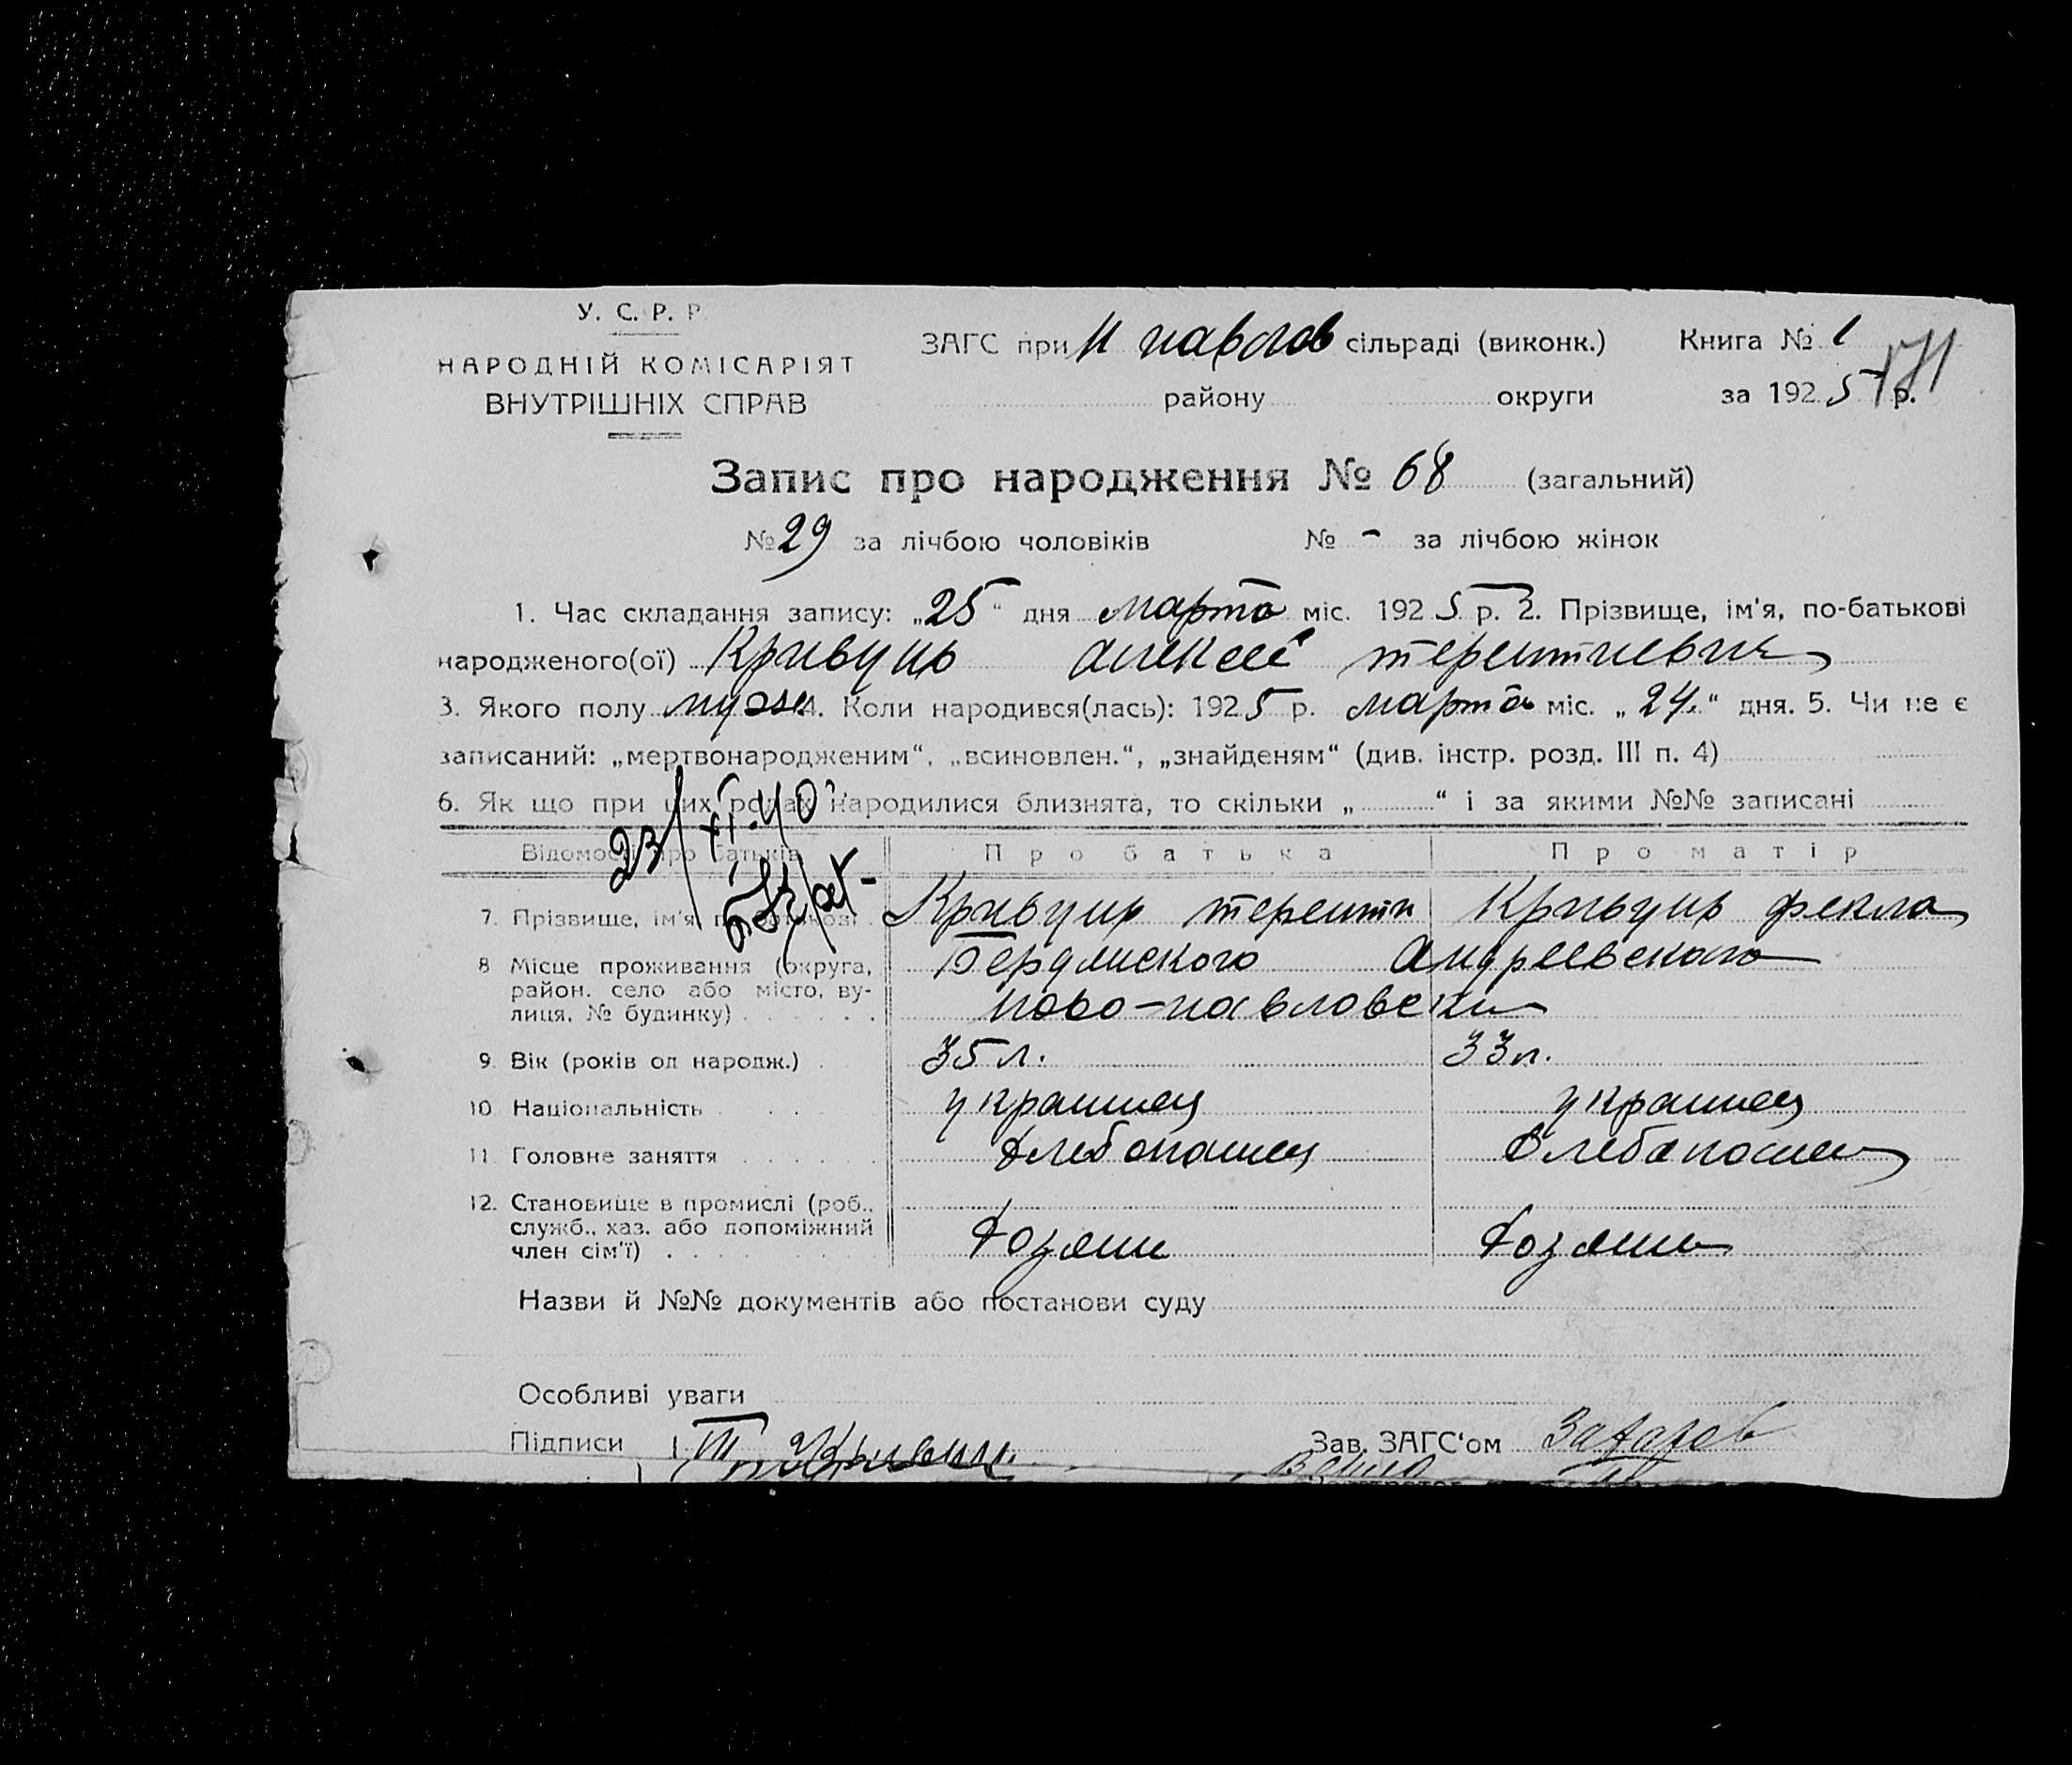 У. С. Р. Р.
НАРОДНІЙ КОМІСАРІЯТ
ВНУТРІШНІХ СПРАВ
ЗАГС при Н павлов сільраді (виконк.) Книга № 1
району округи за 1925 р.
171
Запис про народження № 68 (загальний)
№ 29 за лічбою чоловіків № - за лічбою жінок
1. Час складання запису: „25“ дня марта міс. 1925 р. 2. Прізвище, ім'я, по-батькові
народженого(ої) Кривуць алексей терентиевич
3. Якого полу муж 4. Коли народився(лась): 1925 р. марта міс. „24.“ дня. 5. Чи не є
записаний: „мертвонародженим“, „всиновлен.“, „знайденям“ (див. інстр. розд. III п. 4)
6. Як що при цих родах народилися близнята, то скільки „ “ і за якими №№ записані
23/XI.40
Відомості про батьків Про батька Про матір
7. Прізвище, ім'я, по-батькові Кривуць терентий Кривуць фекла
8 Місце проживання (округа, район. село або місто, вулиця, № будинку) Бердянского Андреевского
ново-павловски
9. Вік (років од народж.) 35 л. 33 л.
10 Національність украинец украинец
11. Головне заняття хлебопашец хлебапашец
12. Становище в промислі (роб., служб., хаз. або допоміжний член сім'ї) хозяин хозяин
Назви й №№ документів або постанови суду
Особливі уваги
Підписи Зав. ЗАГС'ом Захаров